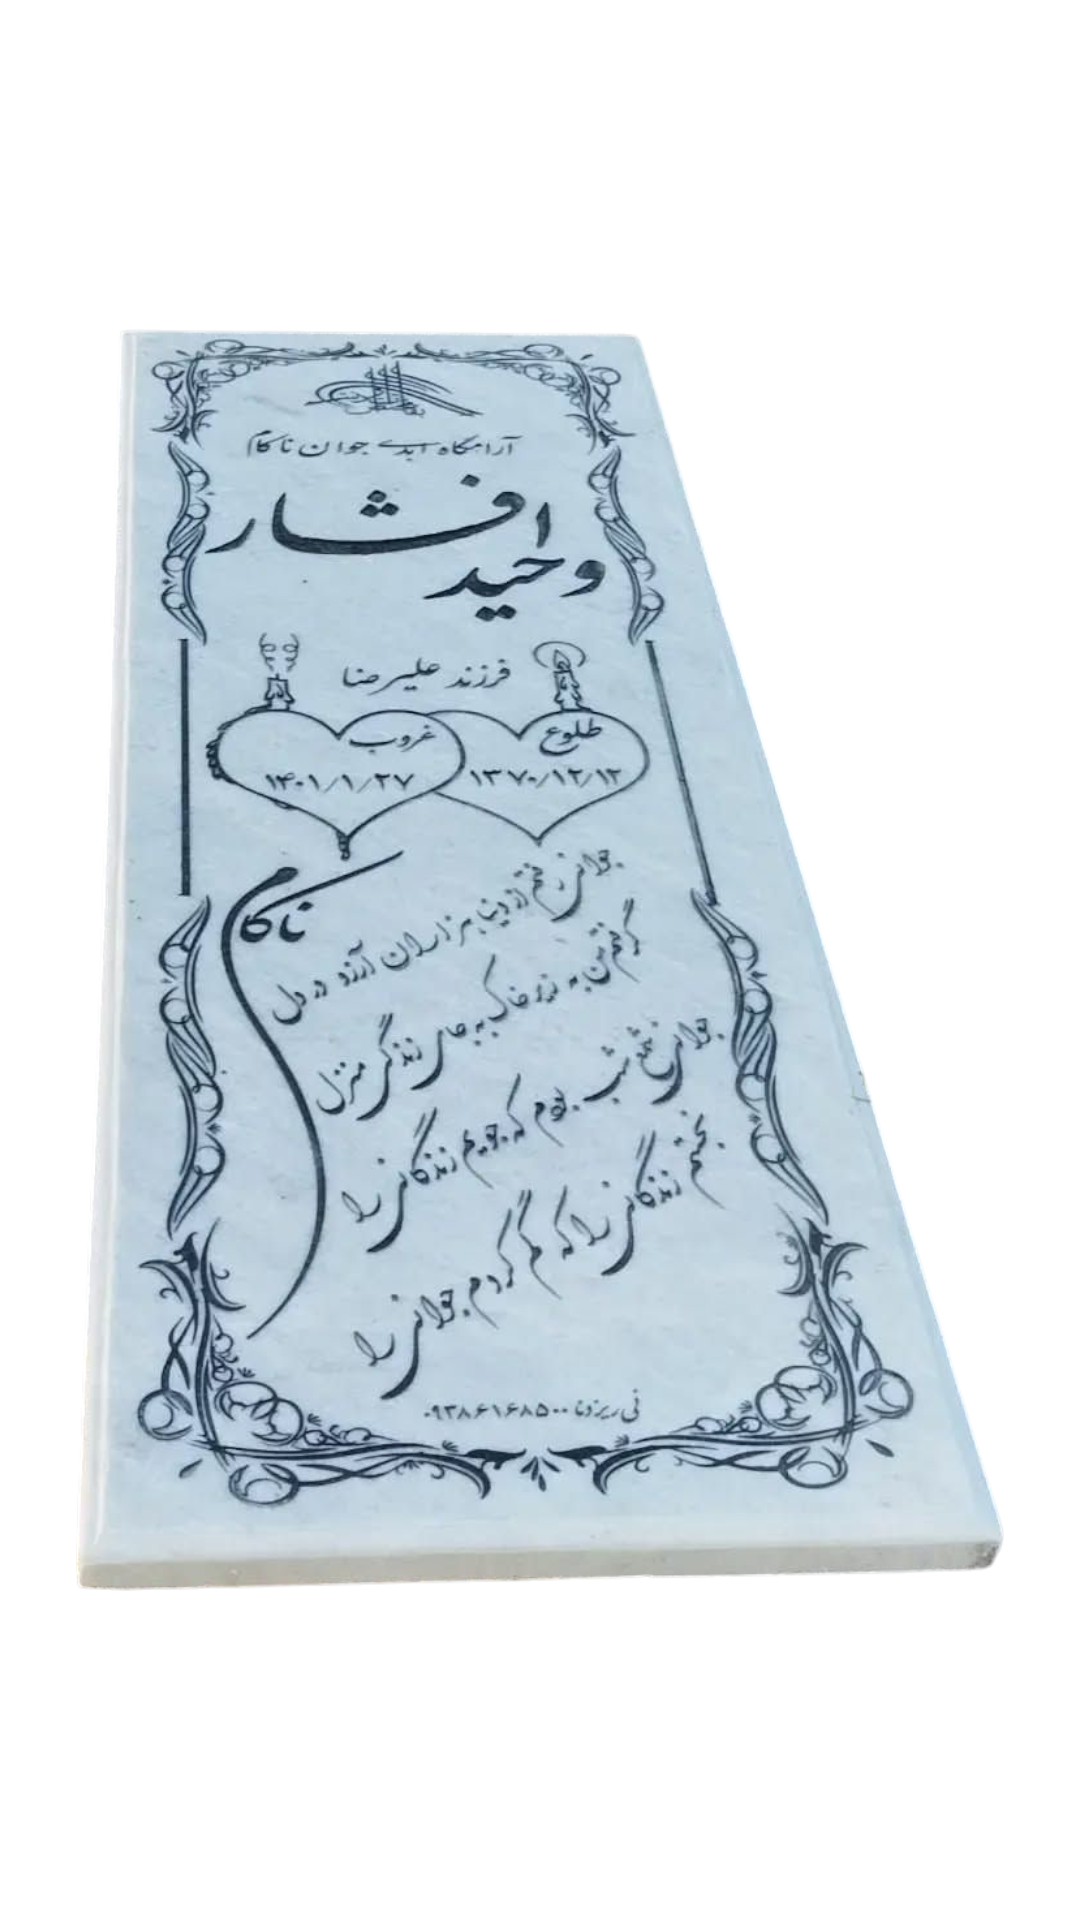 آرامگاه ابدی جوان ناکام
وحید افشار
فرزند علیرضا
طلوع
۱۳۷۰/۱۲/۱۲
غروب
۱۴۰۱/۱/۲۷
ناکام
جوانی رفتم از دنیا هزاران آرزو در دل
گرفتم من به زیر خاک به جای زندگی منزل
جوانی شمع شب بودم که جویم زندگانی را
نجستم زندگانی را که گم کردم جوانی را
نی ریز دنا ۰۹۳۸۶۱۶۸۵۰۰